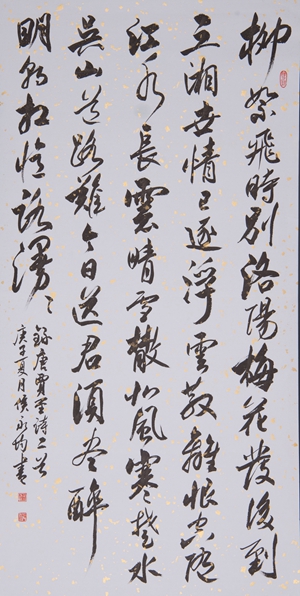 柳絮飛時別洛陽梅花發後到
三湘世情已逐浮雲散離恨空隨
江水長雲晴雪散北風寒楚水
吳山道路難今日送君須盡醉
明朝相憶路漫〻
錄唐賈至詩二首
庚子夏月侯永均書